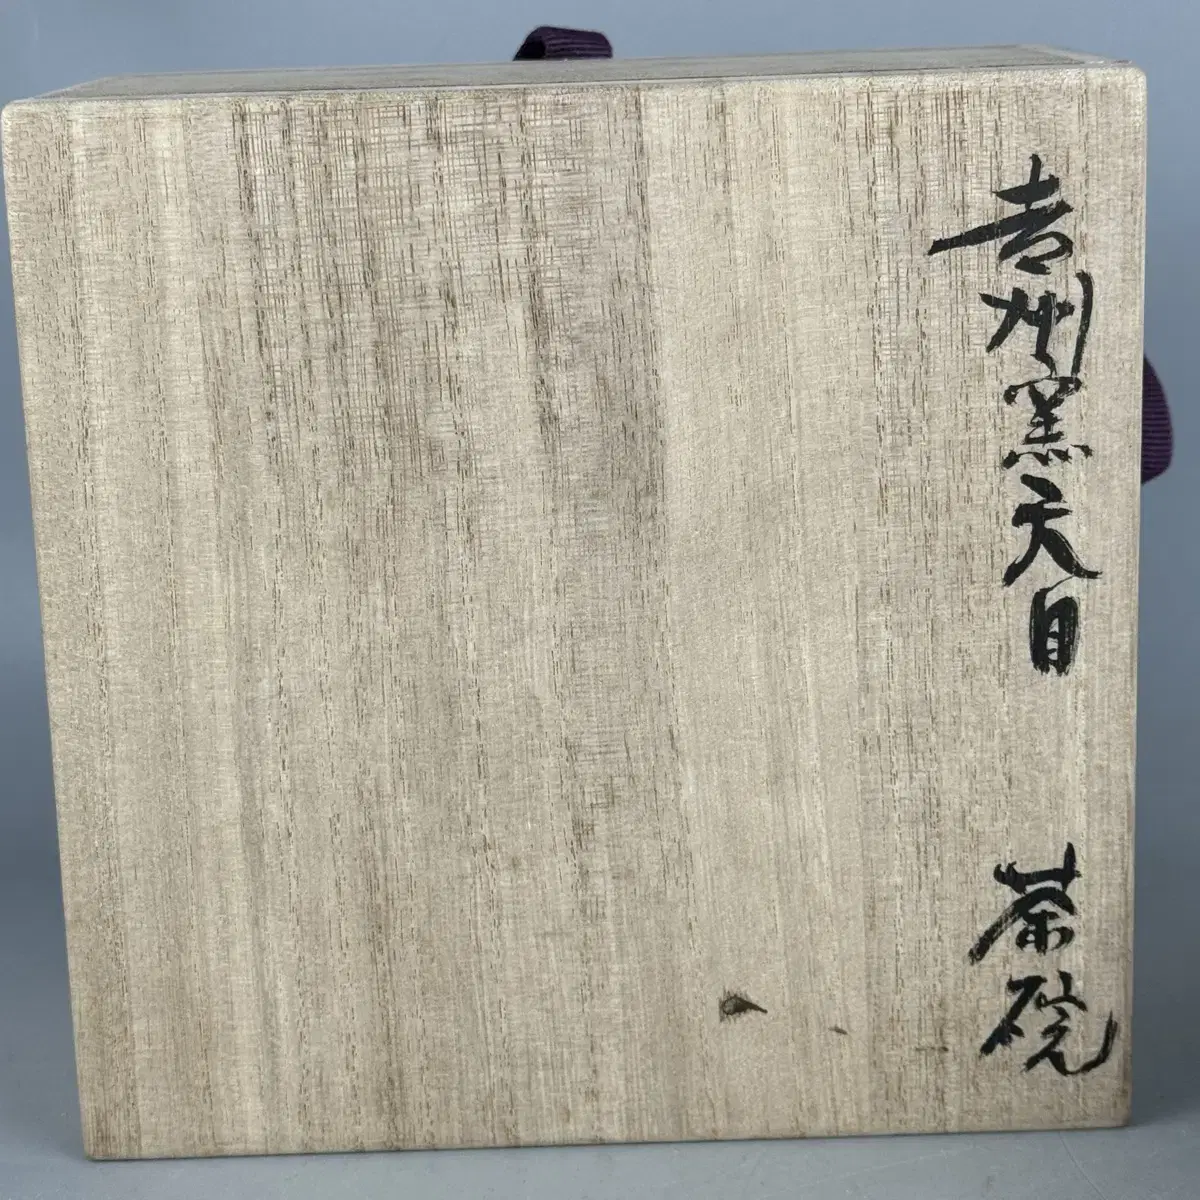 吉州窯天目
茶碗